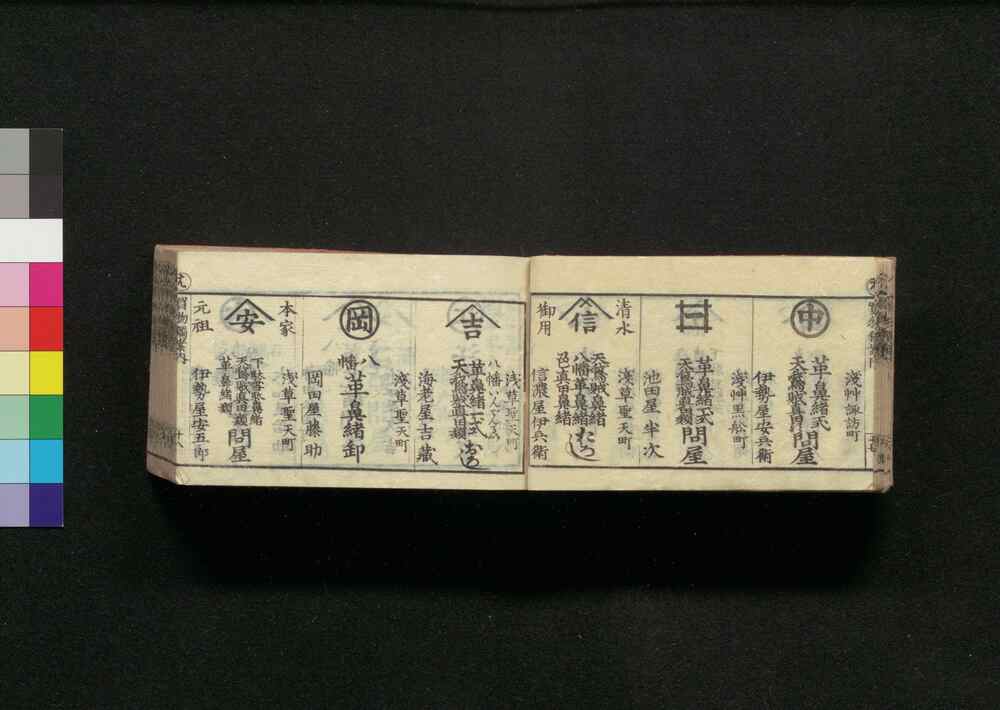 中
浅艸諏訪町
革鼻緒一式
天鵞絨真田類
問屋
伊勢屋安兵衛
浅艸黒舩町
革鼻緒一式
天鵞絨真田類
問屋
池田屋半次
浅草聖天町
清水
信
御用
天鵞絨鼻緒
八幡革鼻緒
真田鼻緒
おろし
信濃屋伊兵衛
浅草聖天町
吉
八幡いんでん
革鼻緒一式
天鵞絨真田類
おろし
海老屋吉蔵
浅草聖天町
岡
八幡
革鼻緒卸
岡田屋藤助
浅草聖天町
本家
安
元祖
下駄雪駄鼻緒
天鵞絨真田類
革鼻緒類
問屋
伊勢屋安五郎